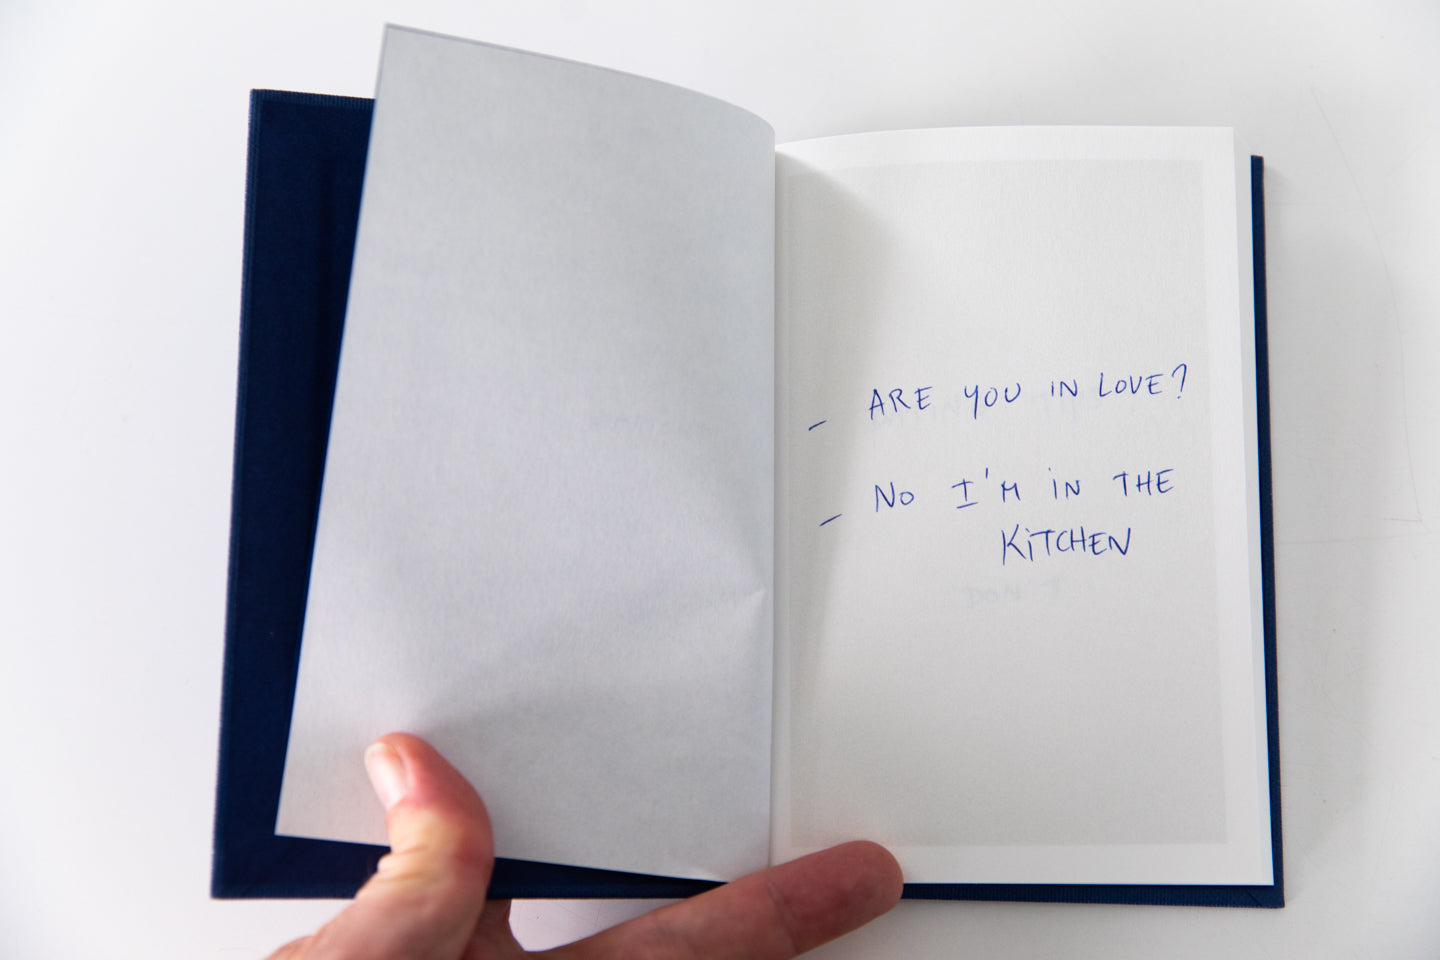 - ARE YOU IN LOVE?
- NO I'M IN THE
KITCHEN
DON'T